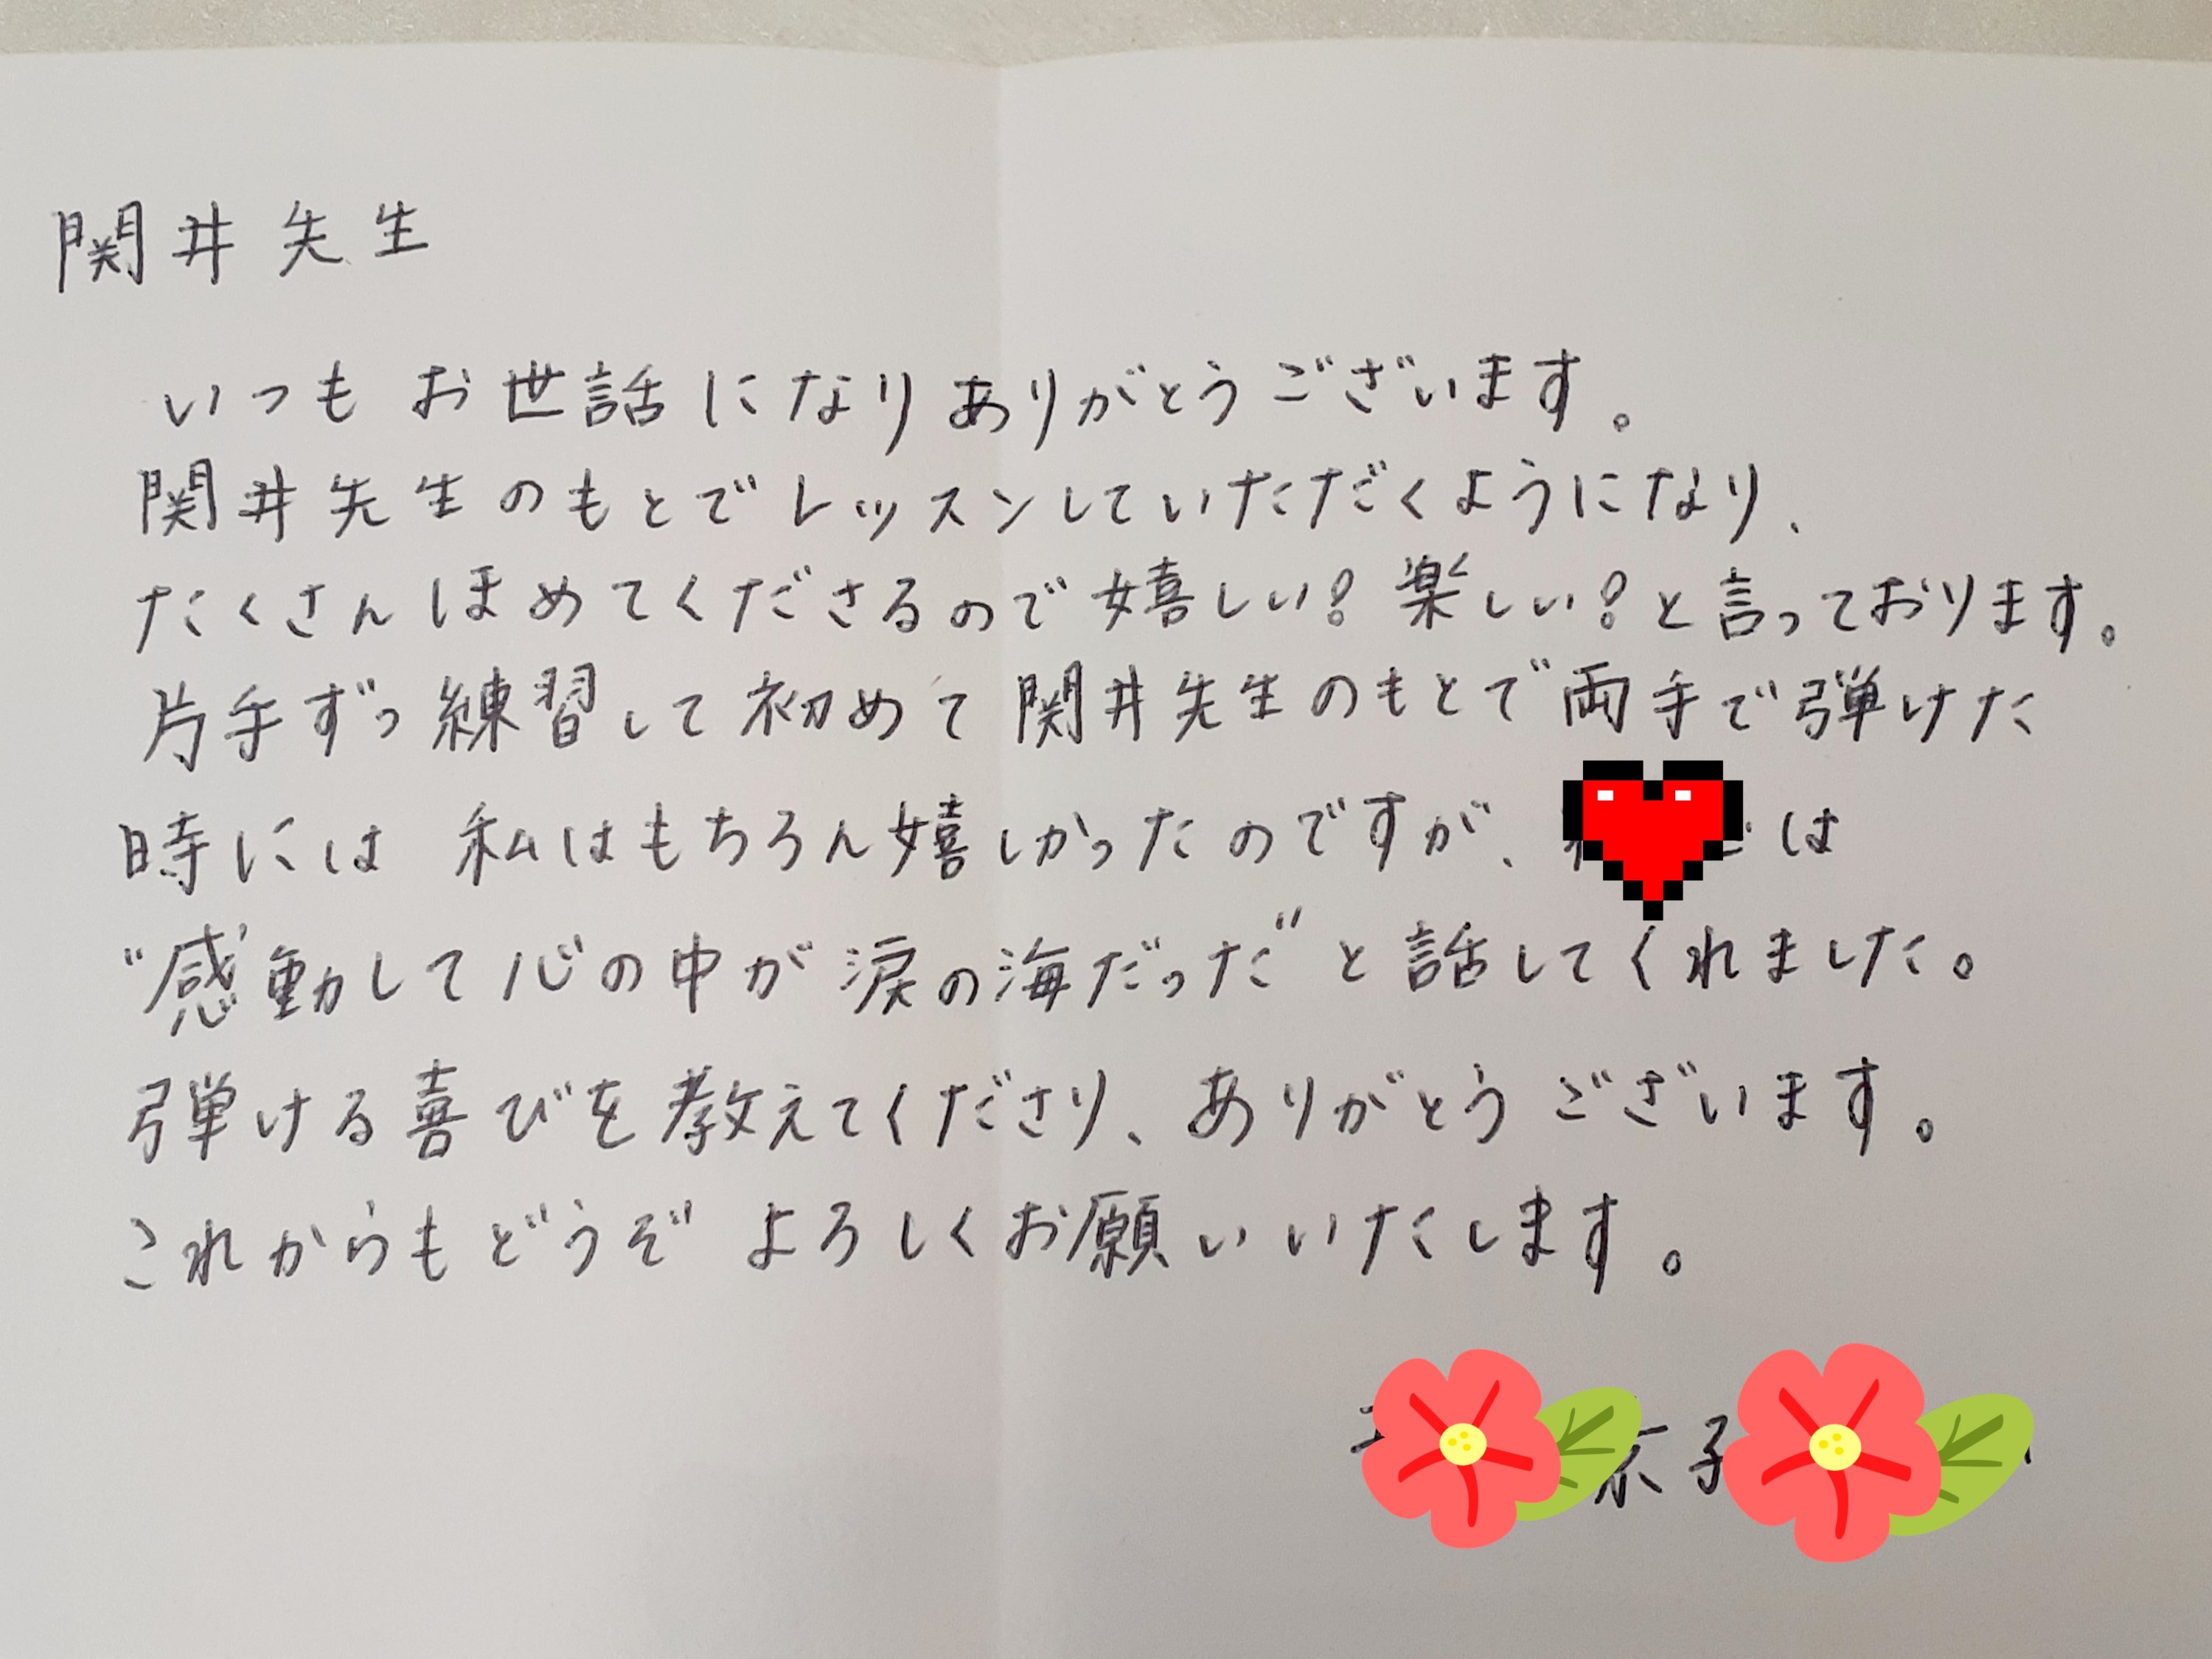 関井先生
いつもお世話になりありがとうございます。
関井先生のもとでレッスンしていただくようになり、
たくさんほめてくださるので嬉しい!楽しい!と言っております。
片手ずつ練習して初めて関井先生のもとで両手で弾けた
時には 私はもちろん嬉しかったのですが、は
"感動して心の中が涙の海だった"と話してくれました。
弾ける喜びを教えてくださり、ありがとうございます。
これからもどうぞ よろしくお願いいたします。
子